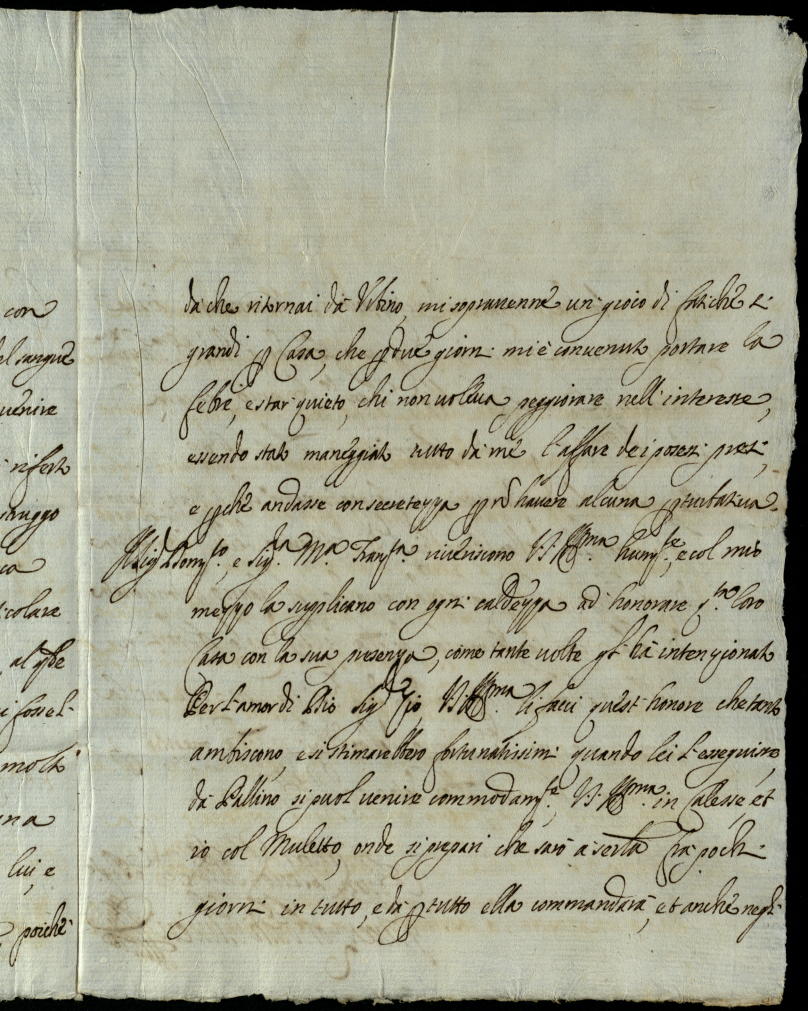 con
del sangue
uenire
rifert
struggo
ca
colare
al qle
i fosse l
molti
una
lui e
poiche
da che ritornai da Vrbino, mi soprauenne un gioco di fatiche si
grandi p Casa, che p due giorni mi è conuenut portare la
febre, e star quieto, chi non uoleua peggiorare nell'interesse,
essendo stat maneggiat tutto da mè l'affare dei poderi presi,
e pche andasse con secretezza p nõ hauere alcuna pturbatiua.
Il Sig.r Dom.co, e Sig.ra M.a Fran.ca riueriscono V.S. Ill.ma hum.te, e col mio
mezzo la supplicano con ogni caldezza ad honorare q.no loro
Casa con la sua presenza, come tante uolte gl'hà intenzionat
Per l'amor di Dio Sig.r Zio, V.S. Ill.ma li facci quest'honore che tant
ambiscono, e si stimarebbero fortunatissimi quando lei l'esseguisse,
da Pallino si puol uenire commodam.te V.S. Ill.ma in Calesse, et
io col Muletto, onde si prepari che sarò a serla frà pochi
giorni in tutto, e dà p tutto ella commandarà, et anche negl'